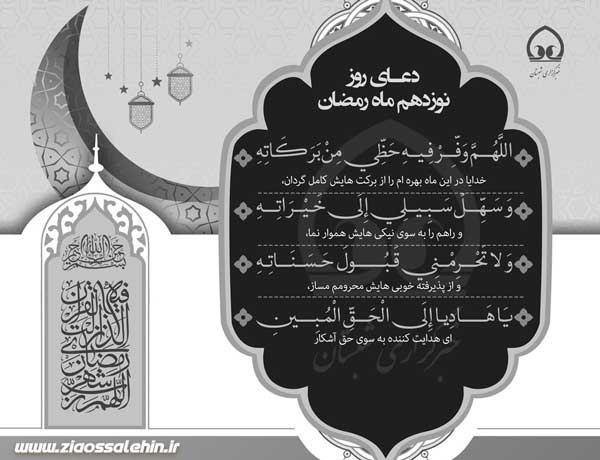 خبرگزاری شبستان
دعـای روز
نوزدهم ماه رمضان
اللَّهُمَّ وَفِّرْ فِيهِ حَظِّي مِنْ بَرَكَاتِهِ
خدایا در این ماه بهره ام را از برکت هایش کامل گردان،
وَسَهِّلْ سَبِيلِي إِلَى خَيْرَاتِهِ
و راهم را به سوی نیکی هایش هموار نما،
وَلا تَحْرِمْنِي قَبُولَ حَسَنَاتِهِ
و از پذیرفته خوبی هایش محرومم مساز،
يَا هَادِيا إِلَى الْحَقِّ الْمُبِينِ
ای هدایت کننده به سوی حق آشکار
خبرگزاری شبستان
بسم الله الرحمن الرحیم
اللهم رب شهر رمضان الذی انزلت فیه القرآن
www.ziaossalehin.ir